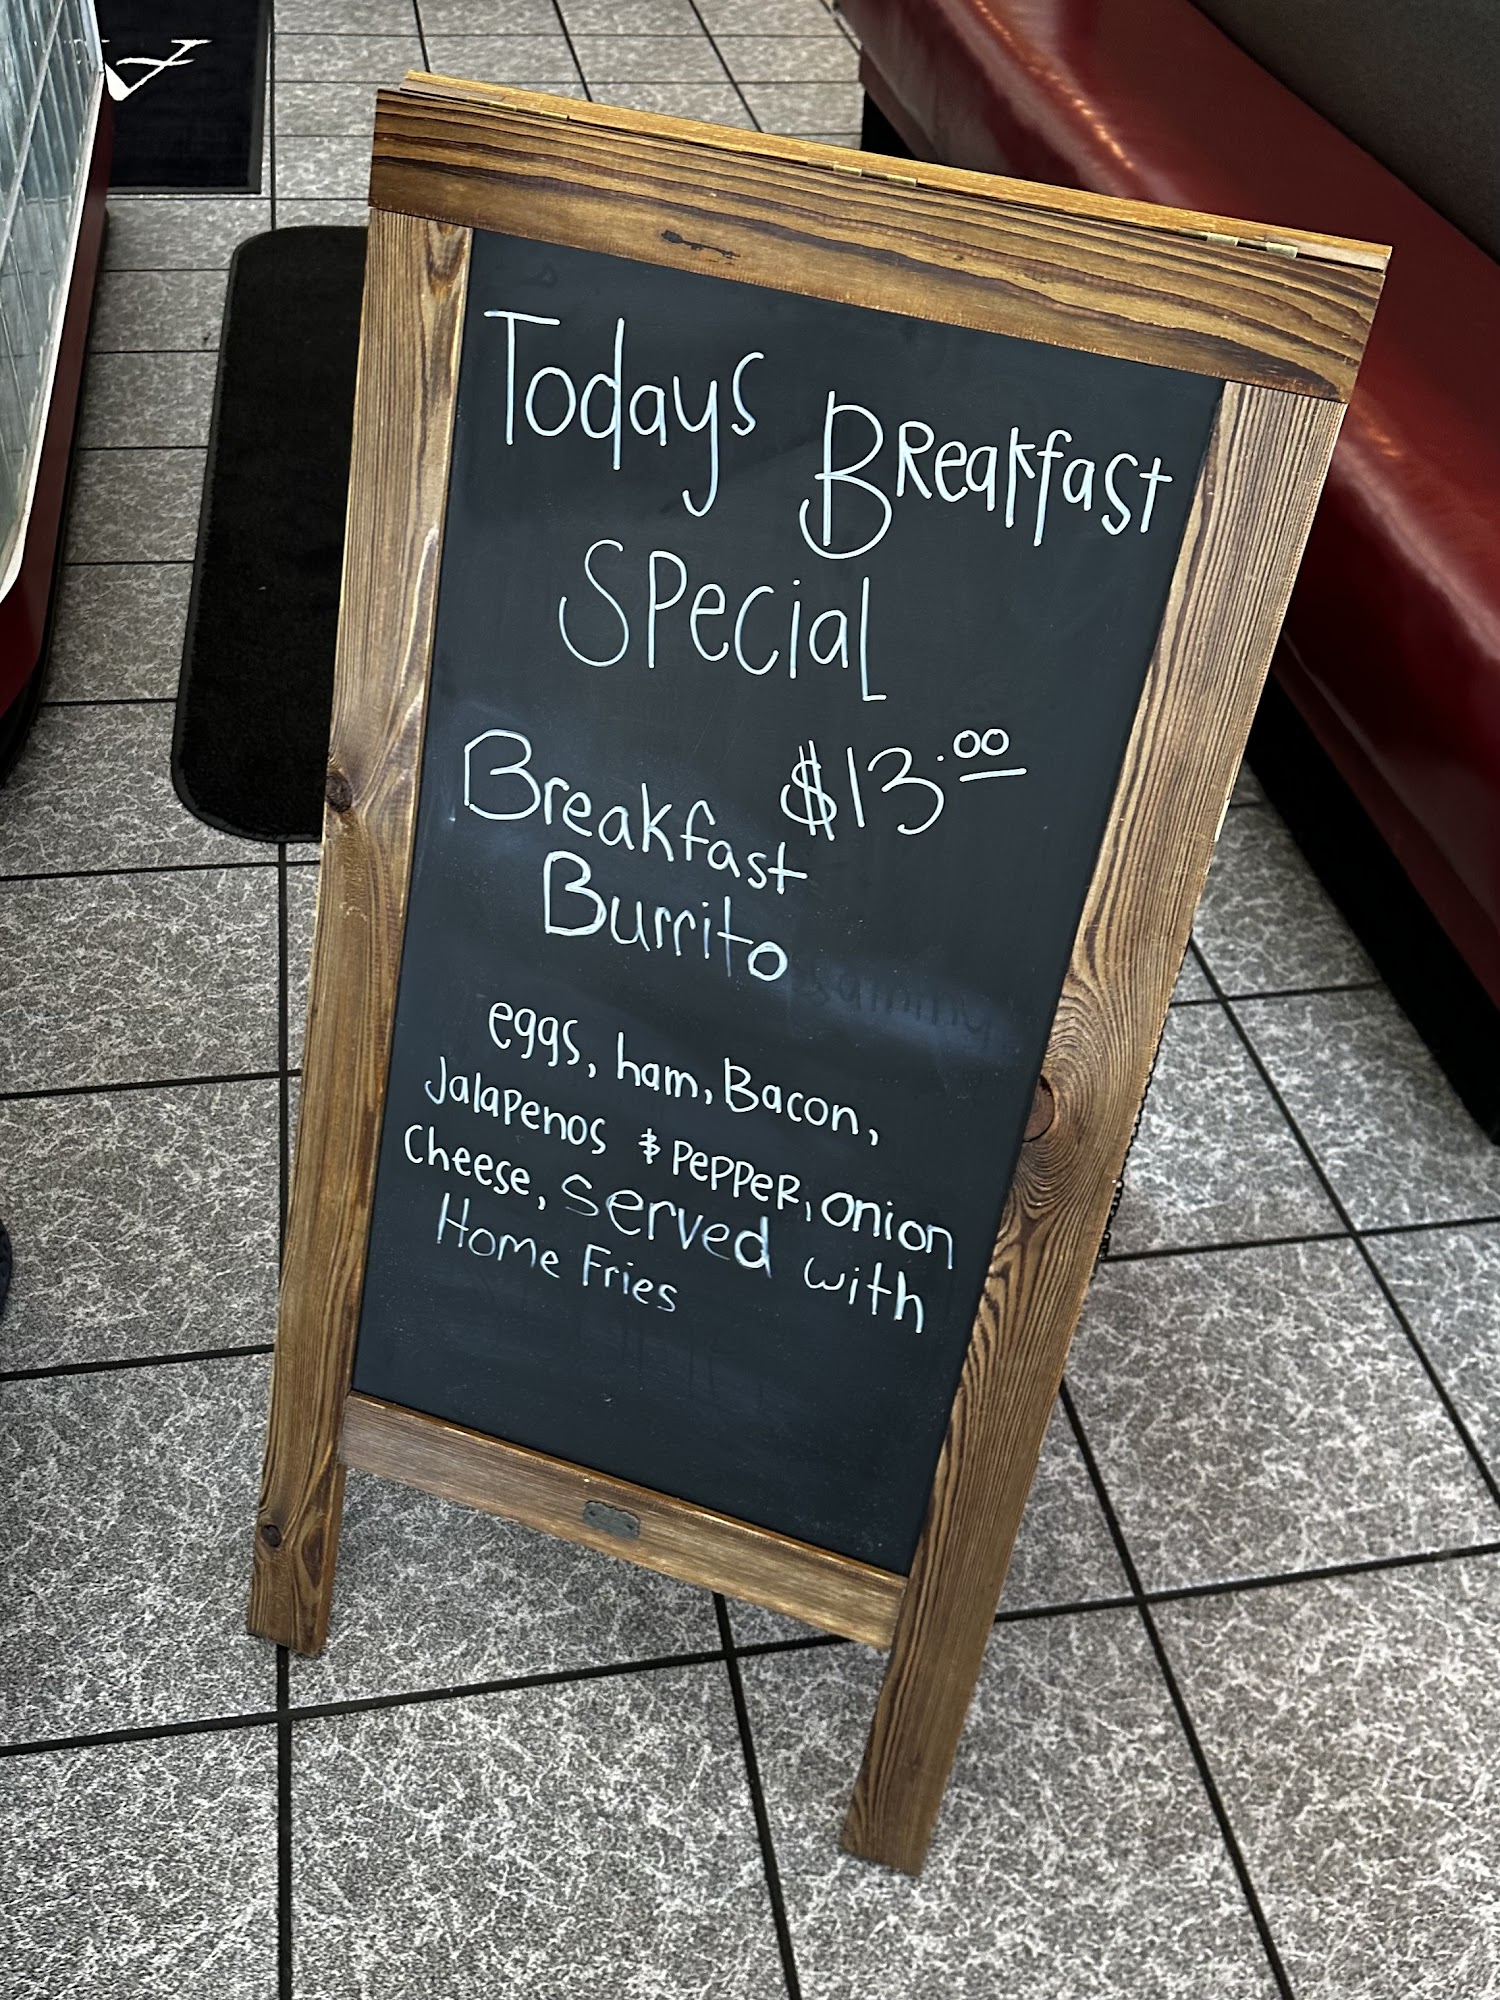 Todays Breakfast
Special
Breakfast $13.00
Burrito
eggs, ham, Bacon,
Jalapenos & Pepper, onion
Cheese, served with
Home Fries